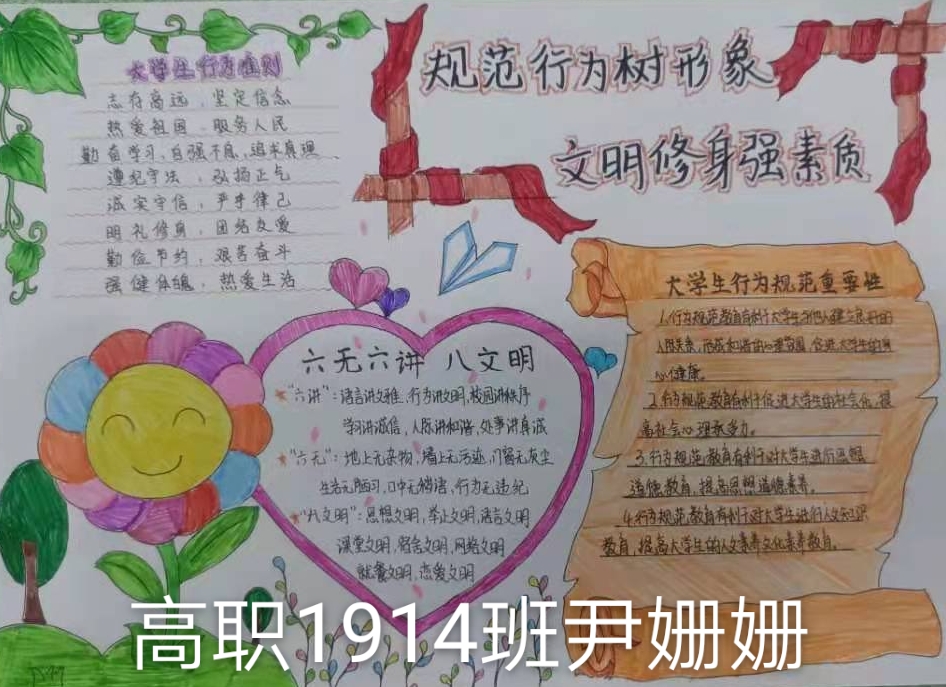 规范行为树形象
文明修身强素质
大学生行为准则
志存高远，坚定信念
热爱祖国，服务人民
勤奋学习，自强不息，追求真理、
遵纪守法，弘扬正气
诚实守信，严于律己
明礼修身，团结友爱
勤俭节约，艰苦奋斗
强健体魄，热爱生活
六无六讲 八文明
"六讲"：语言讲文雅，行为讲文明，校园讲秩序
学习讲诚信，人际讲和谐，处事讲真诚
"六无"：地上无杂物，墙上无污迹，门窗无灰尘
生活无陋习，口中无秽语，行为无违纪
"八文明"：思想文明，举止文明，语言文明
课堂文明，宿舍文明，网络文明
就餐文明，恋爱文明
大学生行为规范重要性
1.行为规范教育有利于大学生与他人建立良好的
人际关系，形成和谐的心理氛围，促进大学生的身
心健康。
2.行为规范教育有利于促进大学生的社会化，提
高社会心理承受力。
3.行为规范教育有利于对大学生进行思想
道德教育，提高思想道德素养。
4.行为规范教育有利于对大学生进行人文知识
教育，提高大学生的人文素养文化素养教育。
高职1914班尹姗姗